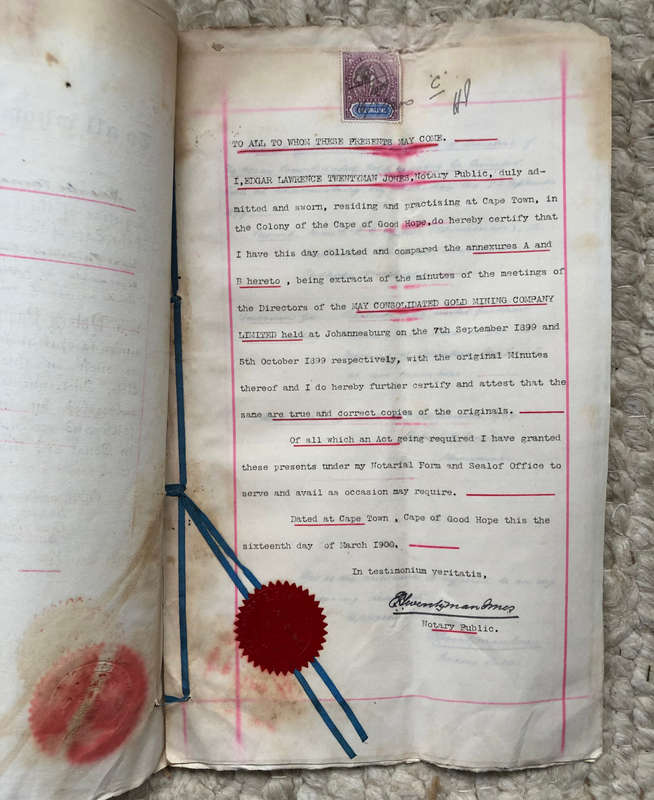 TO ALL TO WHOM THESE PRESENTS MAY COME.
I, EDGAR LAWRENCE TWENTYMAN JONES, Notary Public, duly ad-
mitted and sworn, residing and practising at Cape Town, in
the Colony of the Cape of Good Hope, do hereby certify that
I have this day collated and compared the annexures A and
B hereto , being extracts of the minutes of the meetings of
the Directors of the MAY CONSOLIDATED GOLD MINING COMPANY
LIMITED held at Johannesburg on the 7th September 1899 and
5th October 1899 respectively, with the original Minutes
thereof and I do hereby further certify and attest that the
same are true and correct copies of the originals.
Of all which an Act geing required I have granted
these presents under my Notarial Form and Sealof Office to
serve and avail as occasion may require.
Dated at Cape Town , Cape of Good Hope this the
sixteenth day of March 1900.
In testimonium veritatis,
ELTwentymanJones
Notary Public.